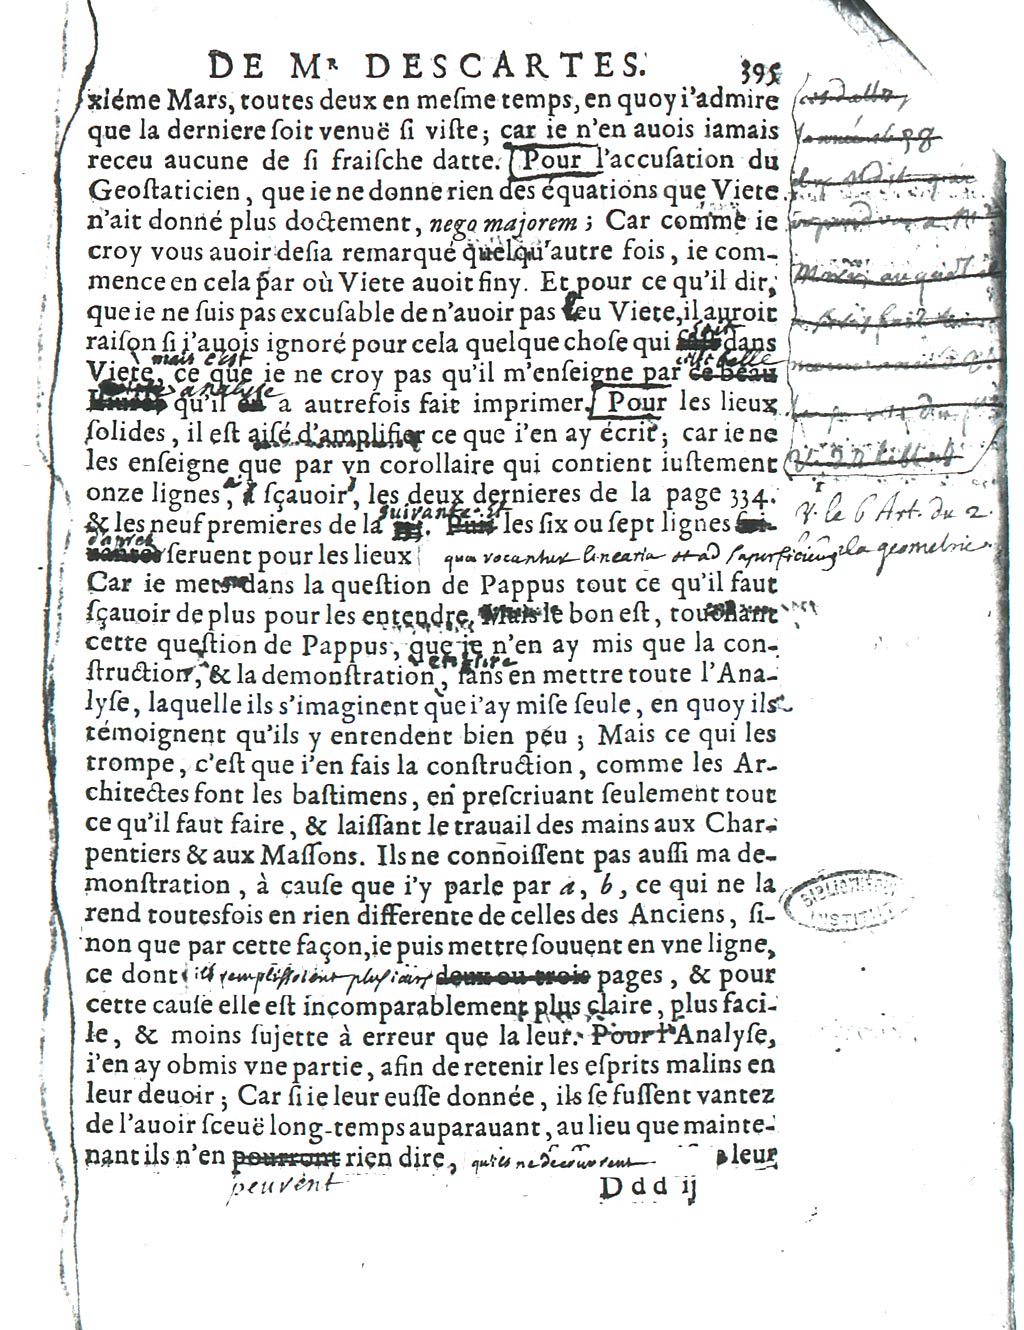 DE Mʀ DESCARTES. 395
xiéme Mars, toutes deux en meſme temps, en quoy i'admire
que la derniere ſoit venuë ſi viſte; car ie n'en auois iamais
receu aucune de ſi fraiſche datte. [Pour l'accuſation du
Geoſtaticien, que ie ne donne rien des équations que Viete
n'ait donné plus doctement, nego majorem; Car comme ie
croy vous auoir deſia remarqué quelqu'autre fois, ie com-
mence en cela par où Viete auoit finy. Et pour ce qu'il dit,
que ie ne ſuis pas excuſable de n'auoir pas leu Viete, il auroit
raiſon ſi i'auois ignoré pour cela quelque choſe qui ſoit dans
mais c'est cette belle
Viete, ce que ie ne croy pas qu'il m'enſeigne par ce beau
analyse
qu'il a autrefois fait imprimer. [Pour les lieux
ſolides, il eſt aiſé d'amplifier ce que i'en ay écrit; car ie ne
les enſeigne que par vn corollaire qui contient iuſtement
onze lignes, à ſçauoir, les deux dernieres de la page 334.
suivante. et
& les neuf premieres de la Puis les ſix ou ſept lignes
d'aprés
ſeruent pour les lieux quæ vocantur linearia et ad superficiem
v. le 6 Art. du 2.
la geometrie.
Car ie mets dans la queſtion de Pappus tout ce qu'il faut
ſçauoir de plus pour les entendre. Mais le bon eſt, touchant
cette queſtion de Pappus, que ie n'en ay mis que la con-
ſtruction, & la demonſtration entiere, ſans en mettre toute l'Ana-
lyſe, laquelle ils s'imaginent que i'ay miſe ſeule, en quoy ils
témoignent qu'ils y entendent bien peu; Mais ce qui les
trompe, c'eſt que i'en fais la conſtruction, comme les Ar-
chitectes font les baſtimens, en preſcriuant ſeulement tout
ce qu'il faut faire, & laiſſant le trauail des mains aux Char-
pentiers & aux Maſſons. Ils ne connoiſſent pas auſſi ma de-
monſtration, à cauſe que i'y parle par a, b, ce qui ne la
rend toutesfois en rien differente de celles des Anciens, ſi-
non que par cette façon, ie puis mettre ſouuent en vne ligne,
ce dont ils remplissoient plusieurs deux ou trois pages, & pour
cette cauſe elle eſt incomparablement plus claire, plus faci-
le, & moins ſujette à erreur que la leur. Pour l'Analyſe,
i'en ay obmis vne partie, afin de retenir les eſprits malins en
leur deuoir; Car ſi ie leur euſſe donnée, ils ſe fuſſent vantez
de l'auoir ſceuë long-temps auparauant, au lieu que mainte-
nant ils n'en pourront rien dire, qu'ils ne découvrent leur
peuvent
Ddd ij
BIBLIOTHEQUE
INSTITUT